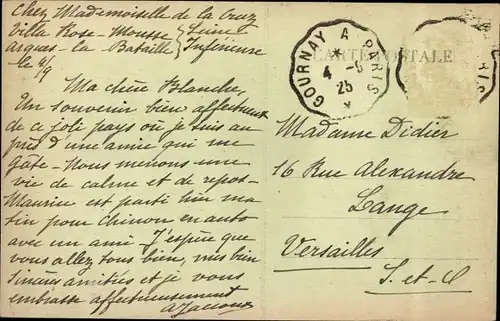 Chez Mademoiselle de la Cruz
Villa Rose-Mousse } Seine
Arques-la-Bataille } Inférieure
le 4/9
Ma chère Blanche,
Un souvenir bien affectueux
de ce joli pays où je suis au
près d'une amie qui me
gâte. Nous menons une
vie de calme et de repos-
Maurice est parti hier ma
tin pour Chinon en auto
avec un ami. J'espère que
vous allez tous bien, mes bien
sincères amitiés et je vous
embrasse affectueusement
GOURNAY A PARIS
4 - 9
25
CARTE POSTALE
RIS
Madame Didier
16 Rue Alexandre
Lange
Versailles
S.-et-O